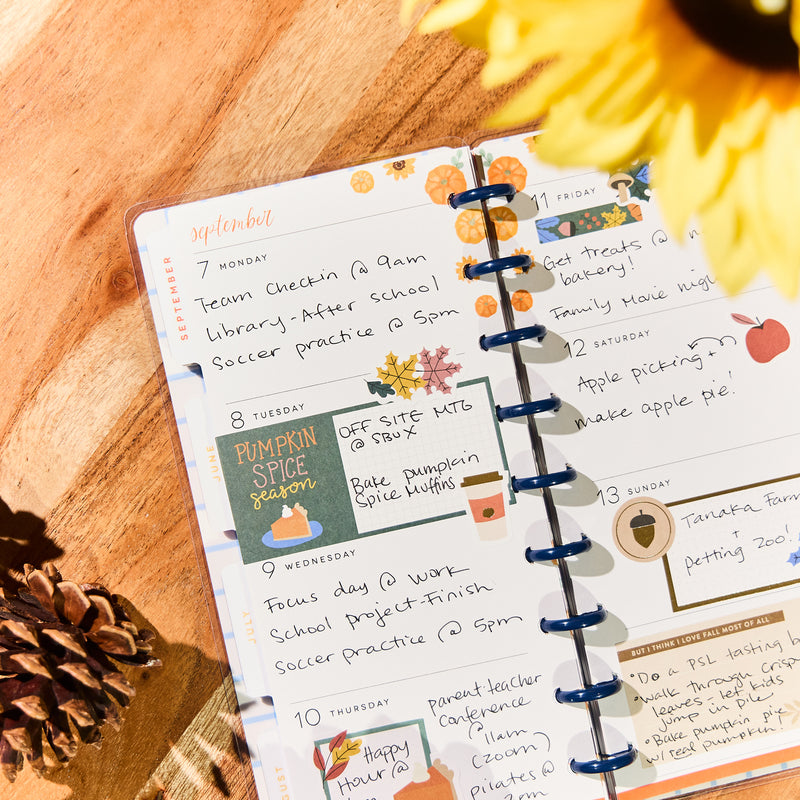 september
SEPTEMBER
7 MONDAY
Team Checkin @ 9am
Library-After school
Soccer practice @ 5pm
8 TUESDAY
PUMPKIN
SPICE
season
OFF SITE MTG
@ SBUX
Bake Pumpkin
Spice Muffins
JUNE
9 WEDNESDAY
Focus day @ work
School project-Finish
Soccer practice @ 5pm
JULY
10 THURSDAY
Happy
Hour @
parent-teacher
conference
@ 11am
(zoom)
pilates @
AUGUST
11 FRIDAY
Get treats @
bakery!
Family Movie
12 SATURDAY
Apple picking +
make apple pie!
13 SUNDAY
Tanaka Farm
+
petting zoo!
BUT I THINK I LOVE FALL MOST OF ALL
• Do a PSL tasting
• walk through crisp
leaves + let kids
jump in pile
• Bake pumpkin pie
w/ real pumpkin!